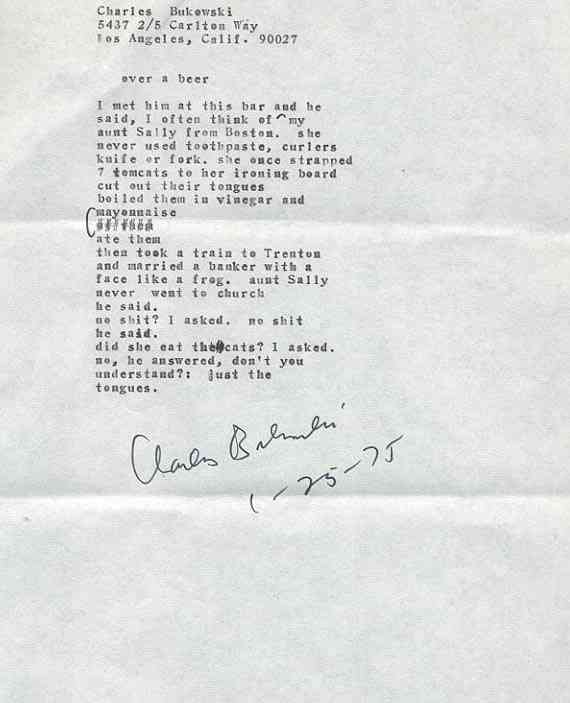 Charles Bukowski
5437 2/5 Carlton Way
Los Angeles, Calif. 90027
over a beer
I met him at this bar and he
said, I often think of ^ my
aunt Sally from Boston. she
never used toothpaste, curlers
knife or fork. she once strapped
7 tomcats to her ironing board
cut out their tongues
boiled them in vinegar and
mayonnaise
ate them
then took a train to Trenton
and married a banker with a
face like a frog. aunt Sally
never went to church
he said.
no shit? I asked. no shit
he said.
did she eat the cats? I asked.
no, he answered, don't you
understand?: just the
tongues.
Charles Bukowski
1-25-75